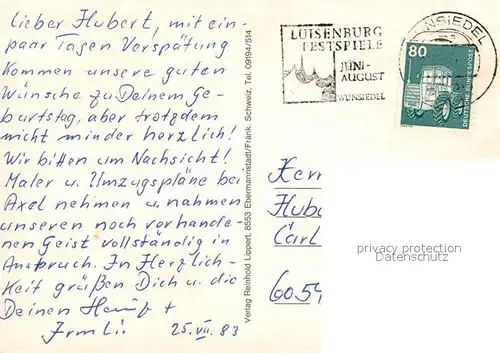 Lieber Hubert, mit ein-
paar Tagen Verspätung
kommen unsere guten
Wünsche zu Deinem Ge-
burtstag, aber trotzdem
nicht minder herzlich!
Wir bitten um Nachsicht!
Maler u. Umzugspläne bei
Axel nehmen u. nahmen
unseren noch vorhande-
nen Geist vollständig in
Anspruch. In Herzlich-
keit grüßen Dich u. die
Deinen
Irmli. 25.VII. 83
Verlag Reinhold Lippert, 8553 Ebermannstadt/Fränk. Schweiz, Tel. 09194/514
LUISENBURG
FESTSPIELE
JUNI-
AUGUST
WUNSIEDEL
NSIEDEL
80
DEUTSCHE BUNDESPOST
Herrn
Hube
Carl
605
privacy protection
Datenschutz